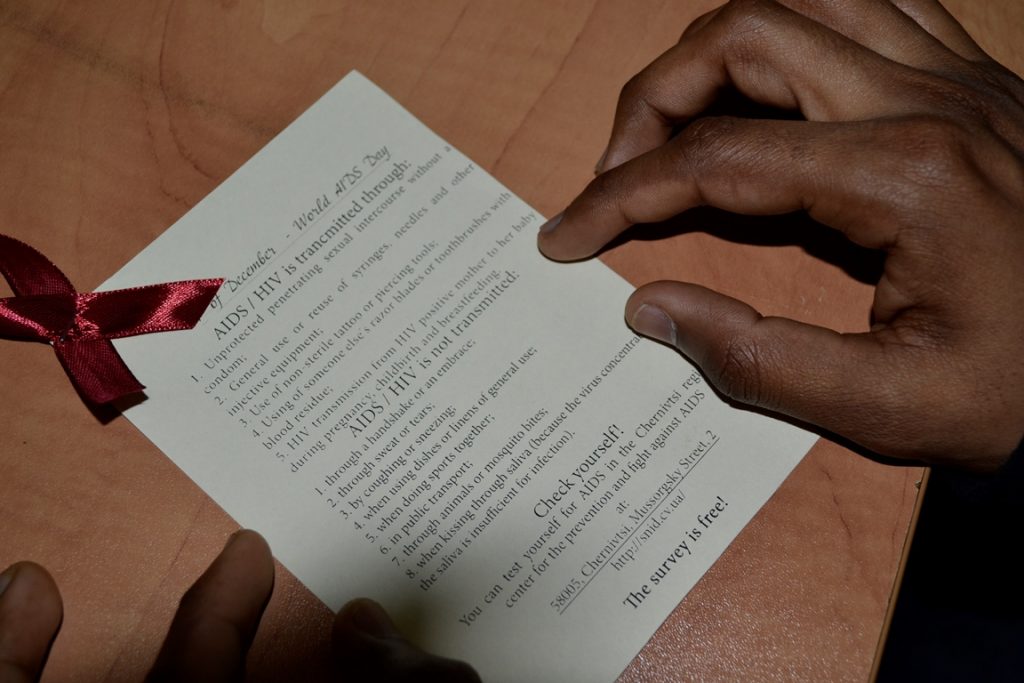 of December - World AIDS Day
AIDS / HIV is trancmitted through:
1. Unprotected penetrating sexual intercourse without a
condom;
2. General use or reuse of syringes, needles and other
injective equipment;
3. Use of non-sterile tattoo or piercing tools;
4. Using of someone else's razor blades or toothbrushes with
blood residue;
5. HIV transmission from HIV positive mother to her baby
during pregnancy, childbirth and breastfeeding.
AIDS / HIV is not transmitted:
1. through a handshake or an embrace;
2. through sweat or tears;
3. by coughing or sneezing;
4. when using dishes or linens of general use;
5. when doing sports together;
6. in public transport;
7. through animals or mosquito bites;
8. when kissing through saliva (because the virus concentra
the saliva is insufficient for infection).
Check yourself!
You can test yourself for AIDS in the Chernivtsi regi
center for the prevention and fight against AIDS
at:
58005, Chernivtsi, Mussorgsky Street, 2
http://snid.cv.ua/
The survey is free!